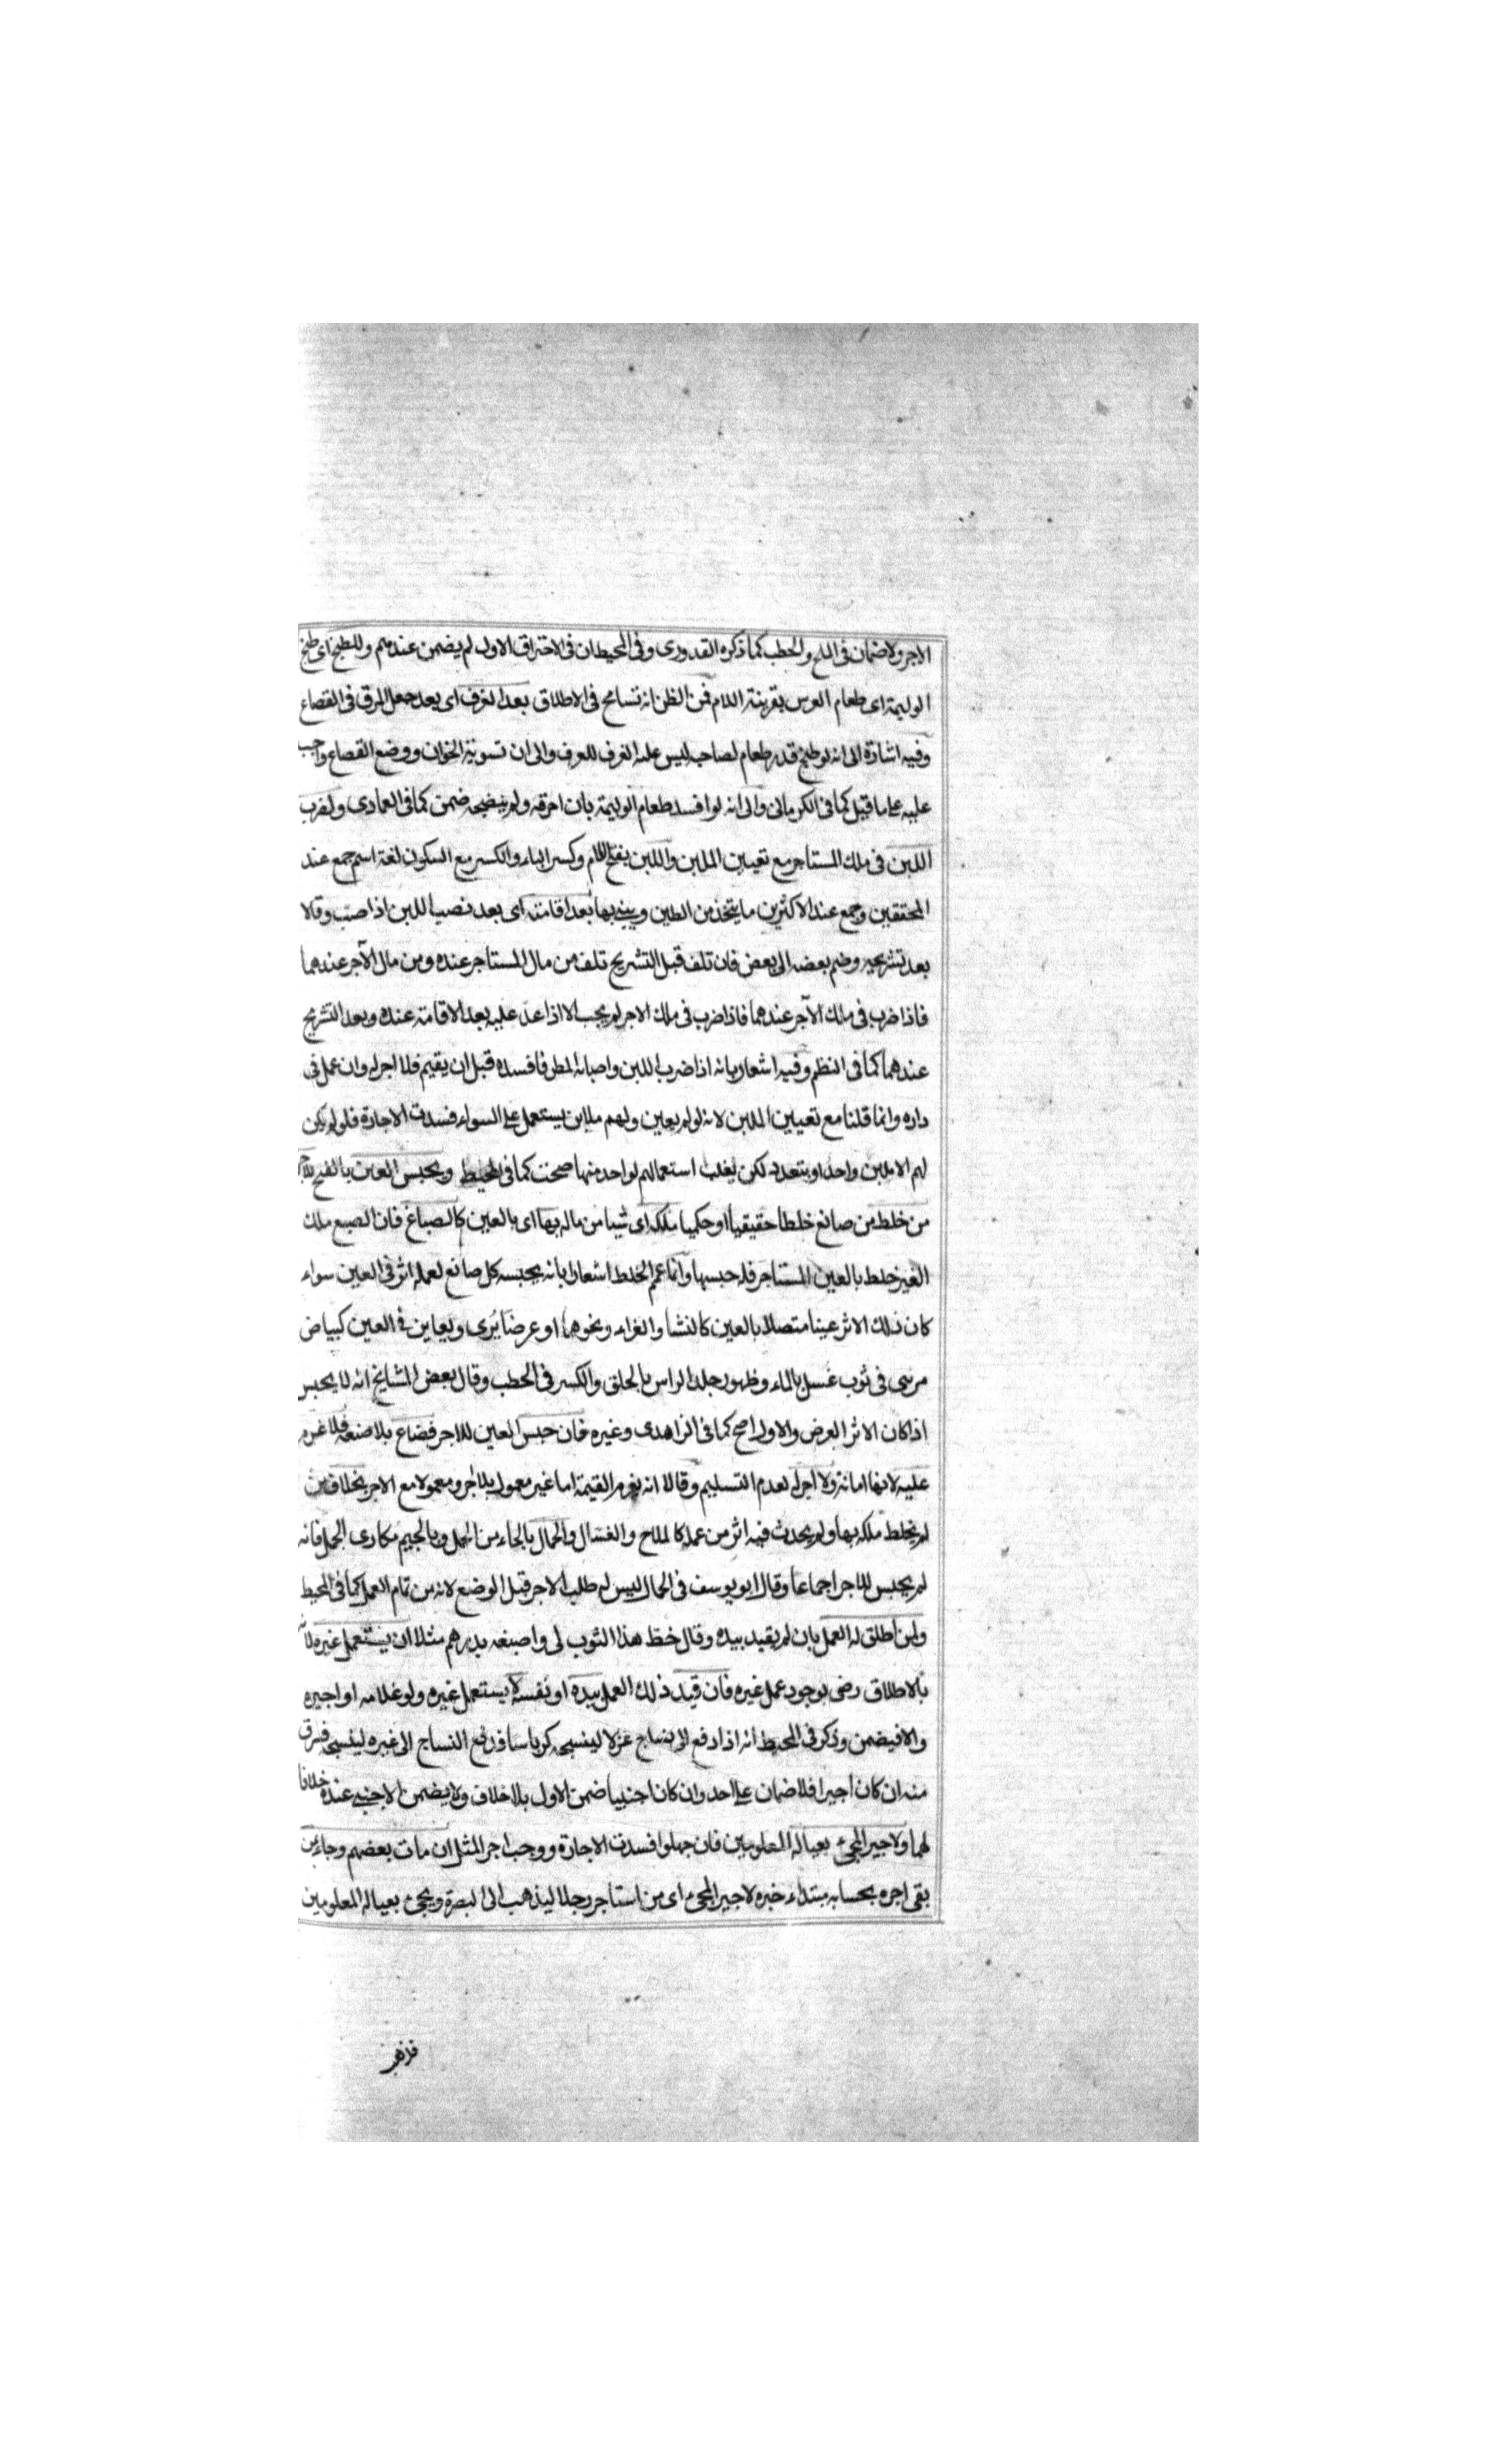 الاجر ولا ضمان فى الملح والحطب كما ذكره القدورى وفى المحيط ان فى الاحتراق الاول لم يضمن عندهم وللطبخ اى طبخ
الوليمة اى طعام العرس بقرينة اللام فمن الظن انه تسامح فى الاطلاق بعد الغرف اى بعد جعل المرق فى القصاع
وفيه اشارة الى انه لو طبخ قدر طعام لصاحبه ليس عليه الغرف للعرف والى ان تسوية الخوان ووضع القصاع واجب
عليه على ما قيل كما فى الكرمانى والى انه لو افسد طعام الوليمة بان احرقه ولم ينضجه ضمن كما فى العمادى ولضرب
اللبن فى ملك المستاجر مع تعيين الملبن واللبن بفتح اللام وكسر الباء والكسر مع السكون لغة اسم جمع عند
المحققين وجمع عند الاكثرين ما يتخذ من الطين ويبنى بها بعد اقامته اى بعد نصب اللبن اذا صب وقالا
بعد تشريجه وضم بعضه الى بعض فان تلف قبل التشريج تلف من مال المستاجر عنده ومن مال الآجر عندهما
فاذا ضرب فى ملك الآجر عندهما فاذا ضرب فى ملك الاجر لم يجب الا اذا عد عليه بعد الاقامة عنده وبعد التشريج
عندهما كما فى النظم وفيه اشعار بانه اذا ضرب اللبن واصابه المطر فافسده قبل ان يقيم فلا اجر له وان عمل فى
داره وانما قلنا مع تعيين الملبن لانه لو لم يعين ولهم ملابن يستعمل على السواء فسدت الاجارة فلو لم يكن
لهم الا ملبن واحد او يتعدد لكن يغلب استعمالهم لواحد منها صحت كما فى المحيط ويحبس العين بالفتح للاجر
من خلط من صانع خلطا حقيقيا او حكميا ملكه اى شيا من ماله بها اى بالعين كالصباغ فان الصبع ملك
الغير خلط بالعين المستاجر فله حبسها وانما عمم الخلط اشعارا بانه يحبسه كل صانع لعمله اثر فى العين سواء
كان ذلك الاثر عينا متصلا بالعين كالنشا والغراء ونحوهما او عرضا يُرى ويعاين فى العين كبياض
مرئى فى ثوب غسل بالماء وظهور جلد الراس بالحلق والكسر فى الحطب وقال بعض المشايخ انه لا يحبس
اذا كان الاثر العرض والاول اصح كما فى الزاهدى وغيره فان حبس العين للاجر فضاع بلا صنعه فلا غرم
عليه لانها امانة ولا اجر له لعدم التسليم وقالا انه يغرم القيمة اما غير معمول بلا اجر ومعمولا مع الاجر بخلاف من
لم يخلط ملكه بها ولم يحدث فيه اثر من عمله كالملاح والغسال والحمال بالحاء من الحمل وبالجيم مكارى الجمل فانه
لم يحبس للاجر اجماعا وقال ابو يوسف فى الحمال ليس له طلب الاجر قبل الوضع لانه من تمام العمل كما فى المحيط
ولمن اطلق له العمل بان لم يقيد بيده وقال خط هذا الثوب لى واصبغه بدرهم مثلا ان يستعمل غيره لانه
بالاطلاق رضى بوجود عمل غيره فان قيد ذلك العمل بيده او نفسه لا يستعمل غيره ولو غلامه او اجيره
والا فيضمن وذكر فى المحيط انه اذا دفع الى نساج غزلا لينسجه كرباسا فدفع النساج الى غيره لينسجه فسرق
منه ان كان اجيرا فلا ضمان على احد وان كان اجنبيا ضمن الاول بلا خلاف ولا يضمن الاجنبى عنده خلافا
لهما ولاجير المجئ بعياله المعلومين فان جهلوا فسدت الاجارة ووجب اجر المثل ان مات بعضهم وجاء بمن
بقى اجره بحسابه مبتداء خبره لاجير المجئ اى من استاجر رجلا ليذهب الى البصرة ويجئ بعياله المعلومين